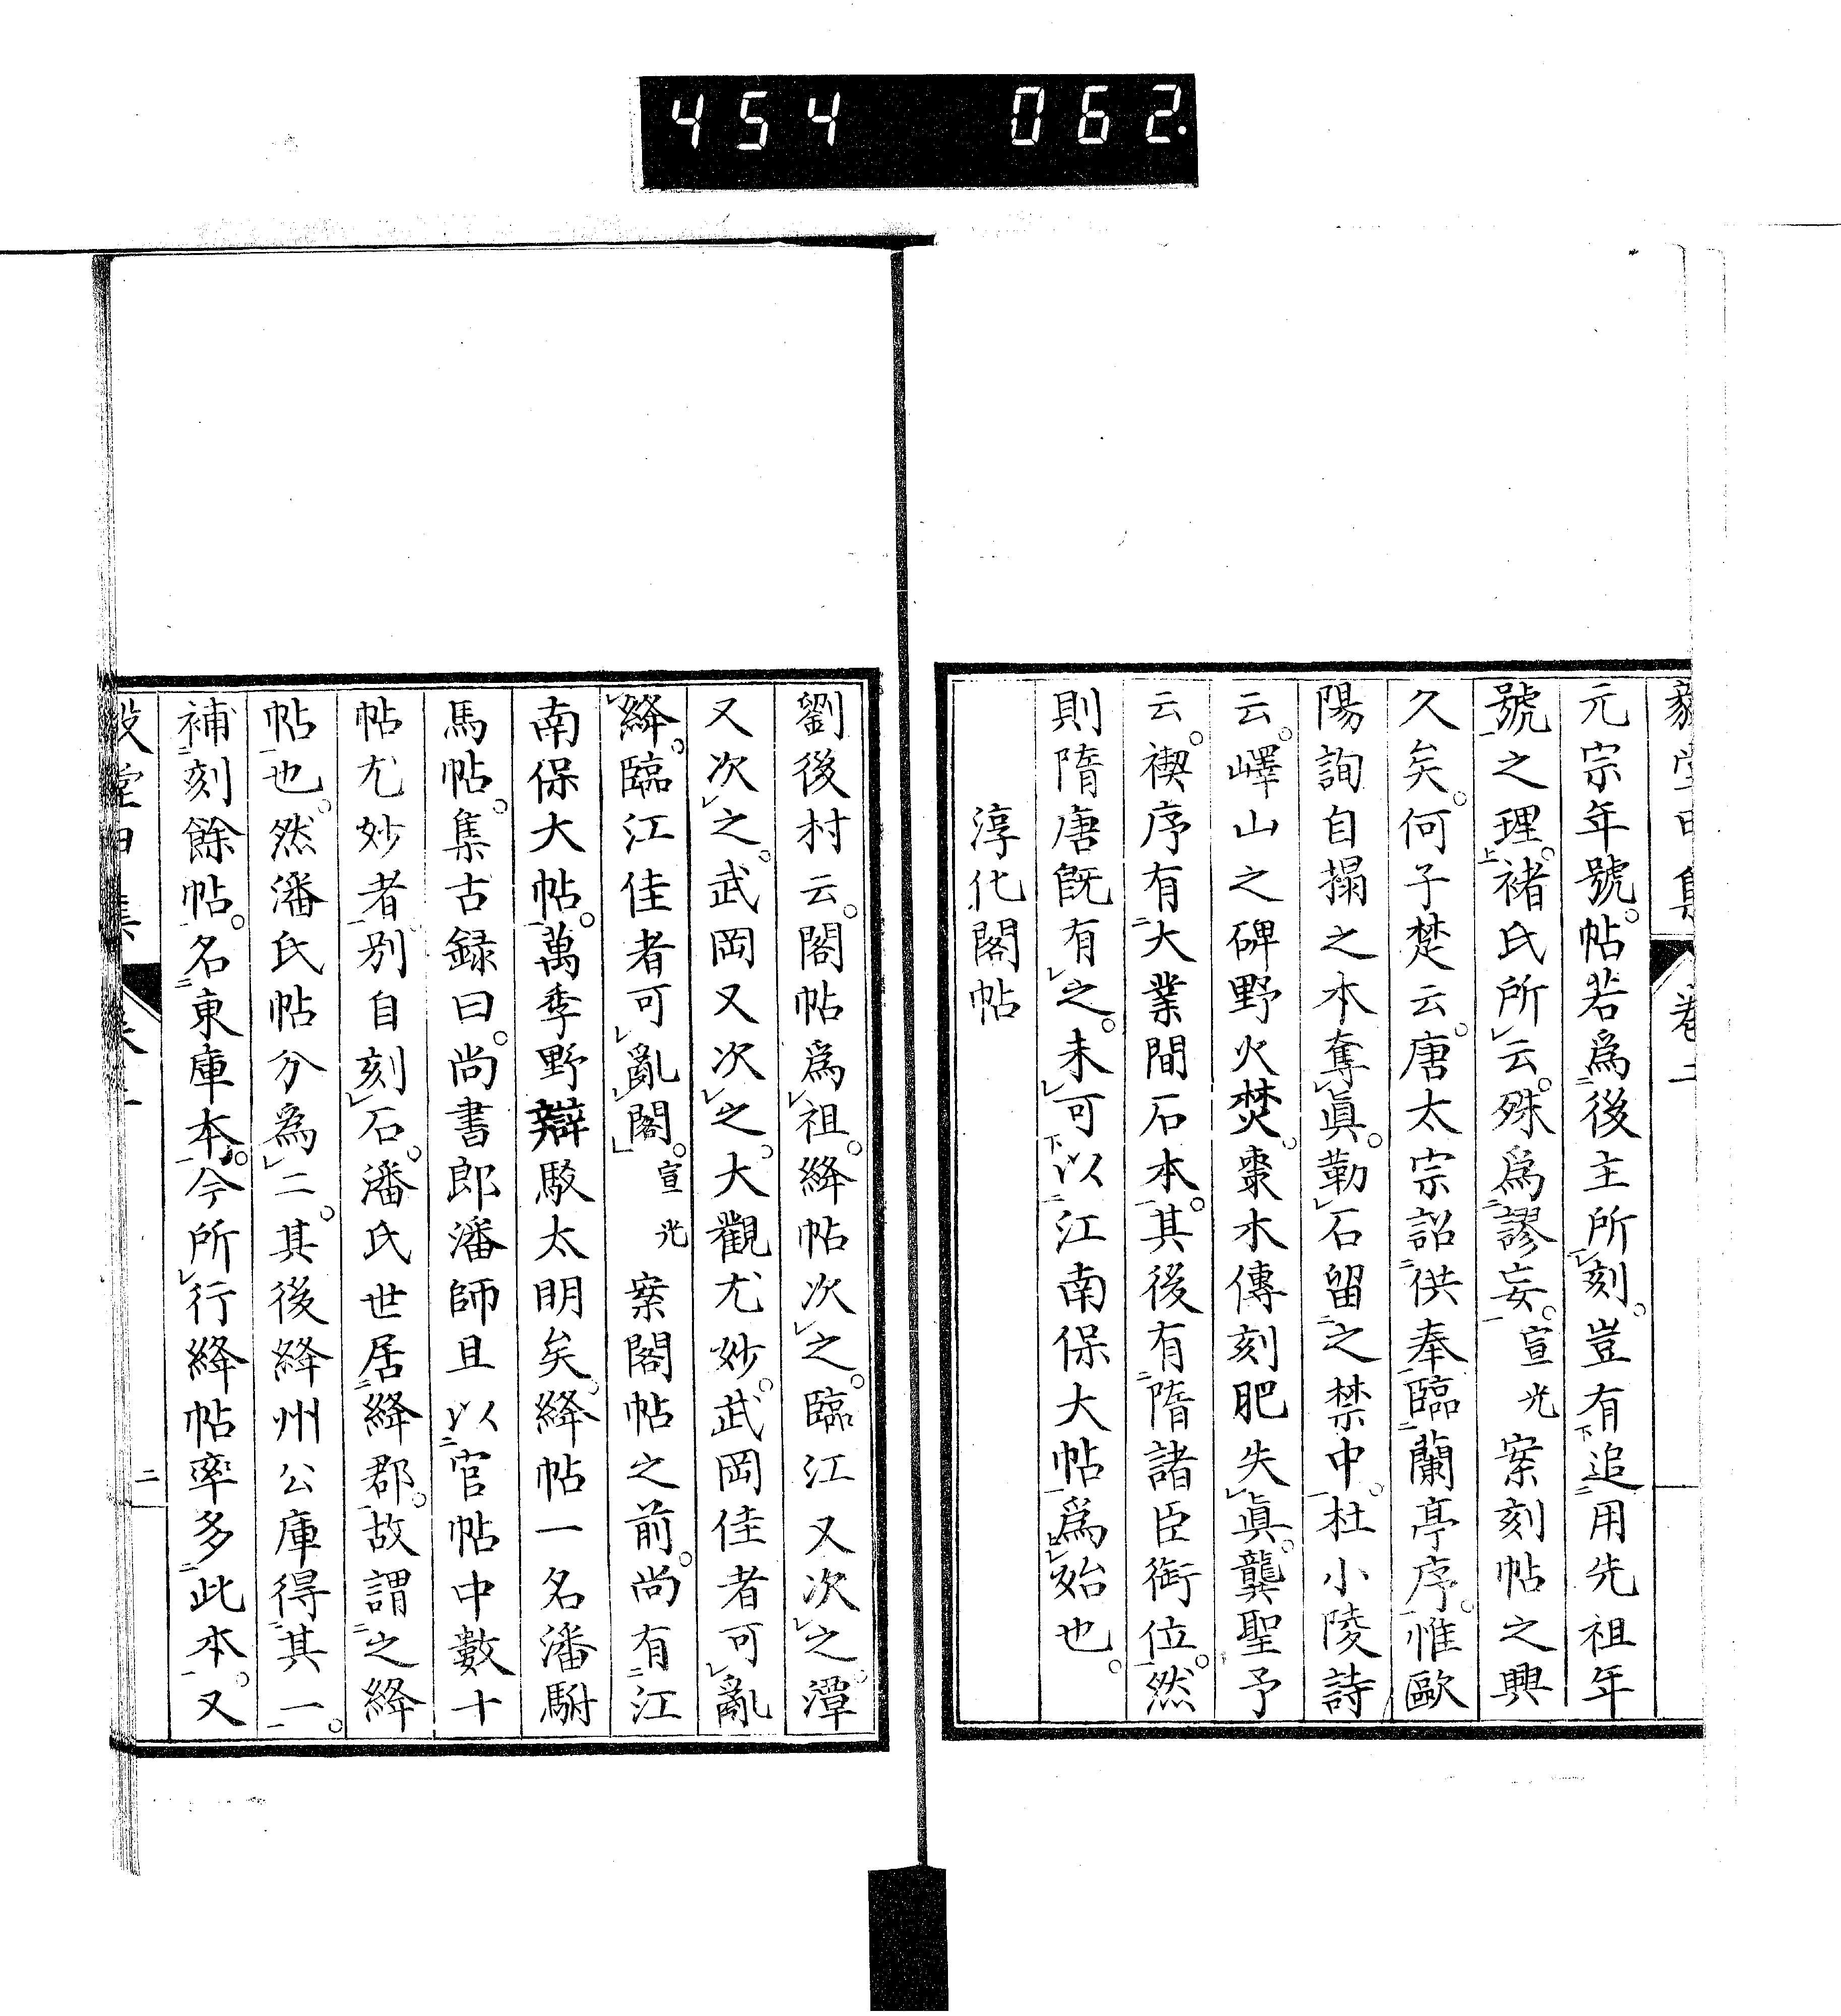 454 062.
元宗年號帖若爲後主所刻豈有追用先祖年
號之理褚氏所云殊爲謬妄宣光案刻帖之興
久矣何子楚云唐太宗詔供奉臨蘭亭序惟歐
陽詢自搨之本奪眞勒石留之禁中杜小陵詩
云嶧山之碑野火焚棗木傳刻肥失眞龔聖予
云禊序有大業間石本其後有隋諸臣銜位然
則隋唐旣有之未可以江南保大帖爲始也
淳化閣帖
劉後村云閣帖爲祖絳帖次之臨江又次之潭
又次之武岡又次之大觀尤妙武岡佳者可亂
絳臨江佳者可亂閣宣光案閣帖之前尚有江
南保大帖萬季野辯駁太明矣絳帖一名潘駙
馬帖集古録曰尚書郎潘師旦以官帖中數十
帖尤妙者別自刻石潘氏世居絳郡故謂之絳
帖也然潘氏帖分爲二其後絳州公庫得其一
補刻餘帖名東庫本今所行絳帖率多此本又
二